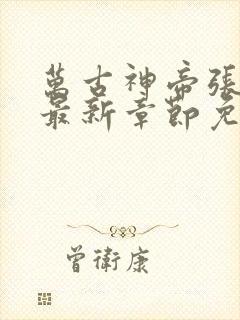 萬古神帝張
最新章節免
曾衛康